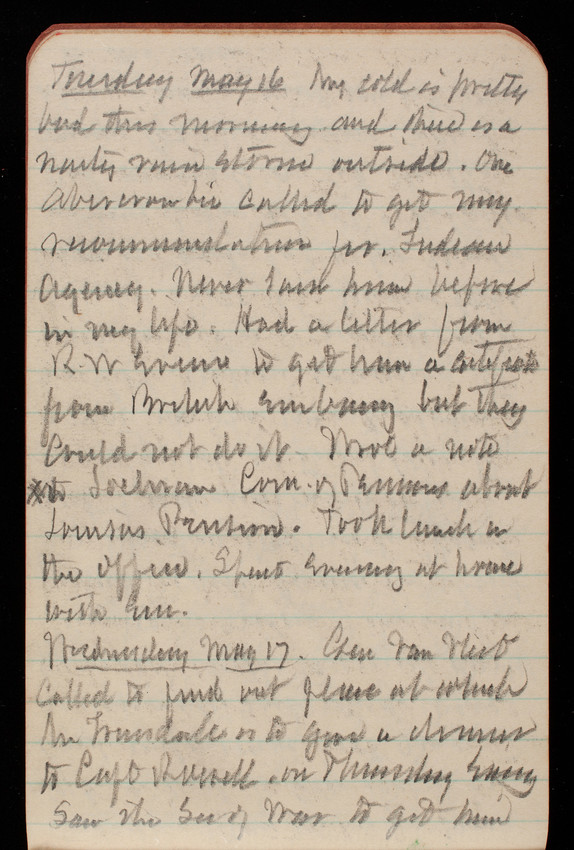 Tuesday May 16 My cold is pretty
bad this morning and there is a
nasty rain storm outside. One
Abercrombie called to get my
recommendation for. Indian
Agency. Never saw him before
in my life. Had a letter from
R. W Evans to get him a certificate
from British Embassy but they
Could not do it. Wrote a note
to Lochren Com. of Pensions about
Louisas Pension. Took lunch in
the office. Spent evening at home
with Em.
Wednesday May 17. Gen Van Vliet
Called to find out place at which
Mr Truesdale is to give a dinner
to Capt Russell on Thursday Eving
Saw the Sec of War to get him